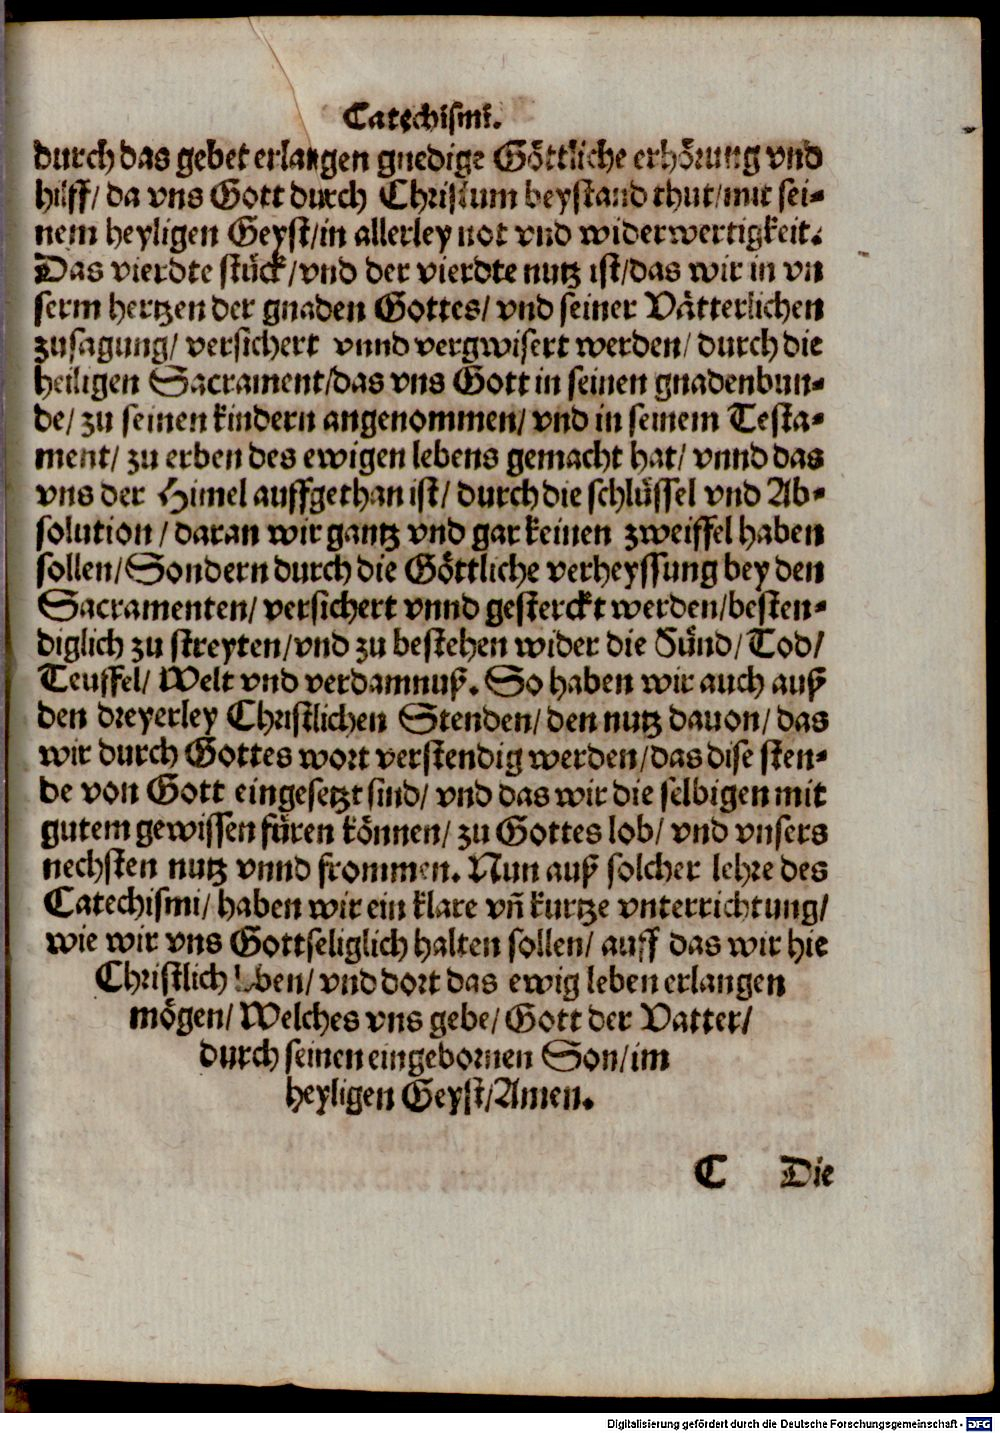 Catechismi.
durch das gebet erlangen gnedige Göttliche erhörung vnd
hilff/ da vns Gott durch Christum beystand thut/mit sei-
nem heyligen Geyst/in allerley not vnd widerwertigkeit.
Das vierdte stück/vnd der vierdte nutz ist/das wir in vn
serm hertzen der gnaden Gottes/ vnd seiner Vätterlichen
zusagung/ versichert vnnd vergwisert werden/ durch die
heiligen Sacrament/das vns Gott in seinen gnadenbun-
de/ zu seinen kindern angenommen/ vnd in seinem Testa-
ment/ zu erben des ewigen lebens gemacht hat/ vnnd das
vns der Himel auffgethan ist/ durch die schlüssel vnd Ab-
solution/ daran wir gantz vnd gar keinen zweiffel haben
sollen/Sondern durch die Göttliche verheyssung bey den
Sacramenten/ versichert vnnd gesterckt werden/besten-
diglich zu streyten/vnd zu bestehen wider die Sünd/ Tod/
Teuffel/ Welt vnd verdamnuß. So haben wir auch auß
den dreyerley Christlichen Stenden/ den nutz dauon/ das
wir durch Gottes wort verstendig werden/das dise sten-
de von Gott eingesetzt sind/ vnd das wir die selbigen mit
gutem gewissen füren können/ zu Gottes lob/ vnd vnsers
nechsten nutz vnnd frommen. Nun auß solcher lehre des
Catechismi/ haben wir ein klare vn̄ kurtze vnterrichtung/
wie wir vns Gottseliglich halten sollen/ auff das wir hie
Christlich leben/ vnd dort das ewig leben erlangen
mögen/ Welches vns gebe/ Gott der Vatter/
durch seinen eingebornen Son/im
heyligen Geyst/Amen.
C Die
Digitalisierung gefördert durch die Deutsche Forschungsgemeinschaft - DFG